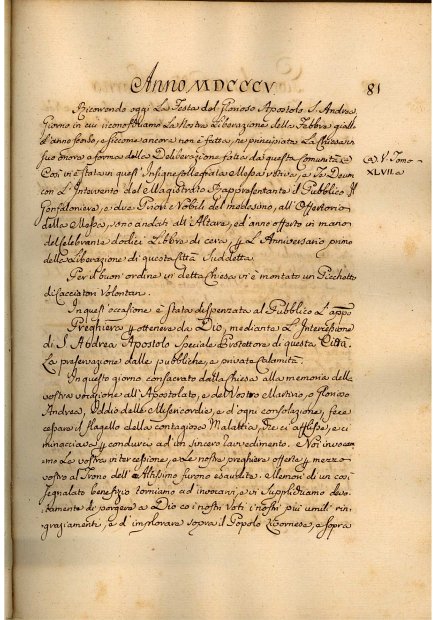 Anno MDCCCV.
81
Ricorrendo oggi La Festa del glorioso Apostolo S. Andrea
Giorno in cui riconosciamo La Nostra Liberazione della Febbre gialla
d'anno scorso, e siccome ancora non è fatta, ne principiata La Chiesa in
suo onore a forma della Deliberazione fatta da questa Comunità (a)
(a) V. Tomo
XLVII. a
Così è stata in quest' Insigne Collegiata Messa votiva, e Te Deum
con L'Intervento del Magistrato Rappresentante il Pubblico. Il
Gonfaloniere, e due Priori e Nobili del medesimo, all'Offertorio
della Messa, sono andati all'Altare, ed anno offerto in mano
del Celebrante dodici Libbre di cera, p L'Anniversario primo
della Liberazione di questa Città Suddetta.
Per il buon'ordine in detta Chiesa vi è montato un Picchetto
di Cacciatori Volontari.
In quest'occasione è stata dispensata al Pubblico L'appo
Preghiera p ottenere da Dio, mediante L'Intercessione
di S. Andrea Apostolo Speciale Protettore di questa Città.
La preservazione dalle pubbliche, e private Calamità.
In questo giorno consacrato dalla Chiesa alla memoria della
vostra vocazione all'Apostolato, e del Vostro Martirio, o glorioso
Andrea, Iddio delle Misericordie, e d'ogni consolazione, fece
cessare il flagello della contagiosa Malattia, che ci afflisse, e ci
minacciava p condurci ad un sincero ravvedimento. Noi invoca-
mmo La vostra intercessione, e Le nostre preghiere offerte p mezzo
vostro al Trono dell'Altissimo furono esaudite. Memori di un così
segnalato benefizio torniamo ad invocarvi, e vi Supplichiamo devo-
tamente di porgere a Dio co i nostri Voti i nostri più umili rin-
graziamenti, e d'implorare sopra il Popolo Livornese, e sopra